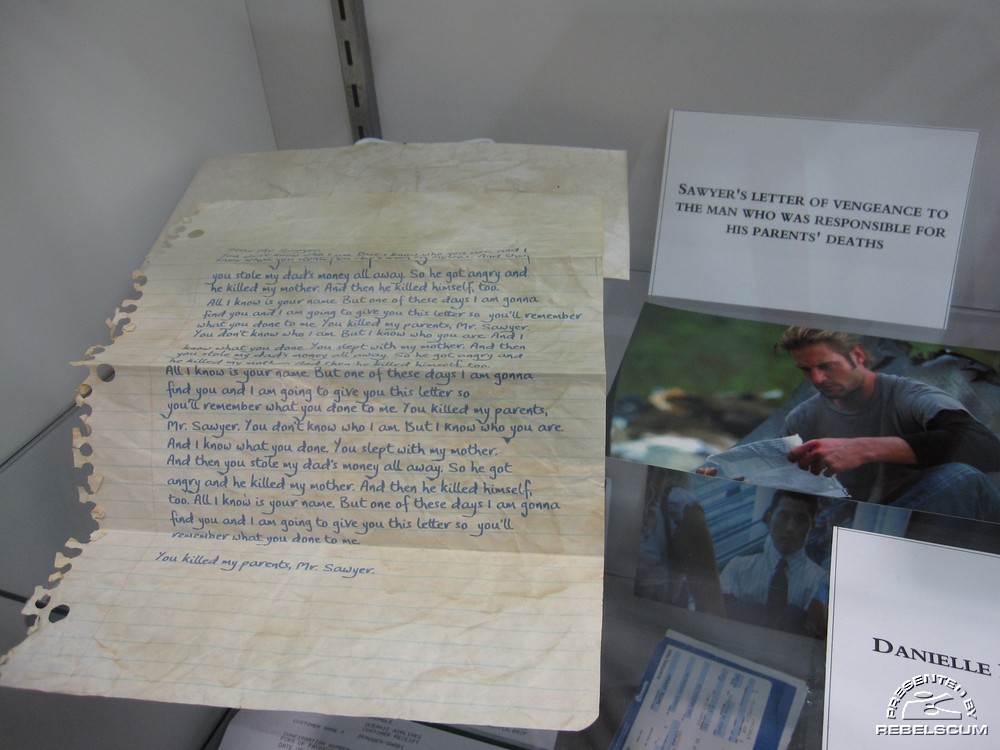 Dear Mr. Sawyer,
you don't know who I am. But I know who you are and I
know what you done.
you stole my dad's money all away. So he got angry and
he killed my mother. And then he killed himself, too.
All I know is your name. But one of these days I am gonna
find you and I am going to give you this letter so you'll remember
what you done to me. You killed my parents, Mr. Sawyer.
You don't know who I am. But I know who you are. And I
know what you done. You slept with my mother. And then
you stole my dad's money all away. So he got angry and
he killed my mother. And then he killed himself, too.
All I know is your name. But one of these days I am gonna
find you and I am going to give you this letter so
you'll remember what you done to me. You killed my parents,
Mr. Sawyer. You don't know who I am. But I know who you are.
And I know what you done. You slept with my mother.
And then you stole my dad's money all away. So he got
angry and he killed my mother. And then he killed himself,
too. All I know is your name. But one of these days I am gonna
find you and I am going to give you this letter so you'll
remember what you done to me.
You killed my parents, Mr. Sawyer.
SAWYER'S LETTER OF VENGEANCE TO
THE MAN WHO WAS RESPONSIBLE FOR
HIS PARENTS' DEATHS
DANIELLE
OCEANIC AIRLINES
CUSTOMER RECEIPT
CUSTOMER NAME
PRESENTED BY
REBELSCUM